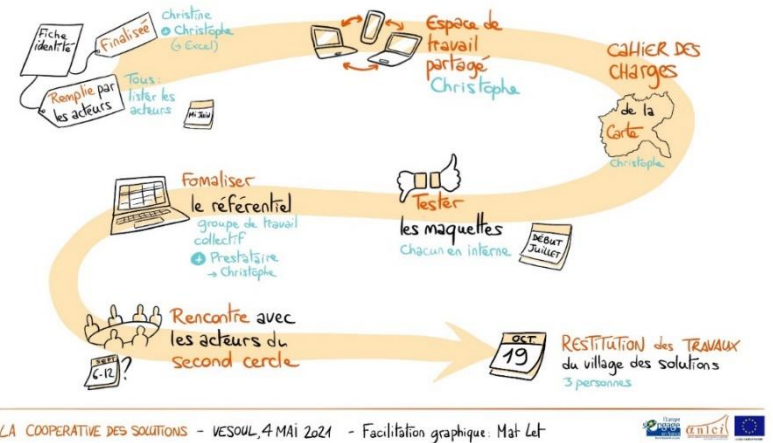 Fiche
identité
Finalisée
Christine
+ Christophe
(→ Excel)
Remplie par
les acteurs
Tous:
lister les
acteurs
Mi Juin
Espace de
travail
partagé
Christophe
CAHIER DES
CHARGES
de la
Carte
Christophe
Fomaliser
le référentiel
groupe de travail
collectif
+ Prestataire
→ Christophe
Tester
les maquettes
Chacun en interne
DÉBUT
JUILLET
Rencontre avec
les acteurs du
second cercle
SEPT
6-12 ?
OCT
19
RESTITUTION des TRAVAUX
du village des solutions
3 personnes
LA COOPERATIVE DES SOLUTIONS - VESOUL, 4 MAI 2021 - Facilitation graphique: Mat Let